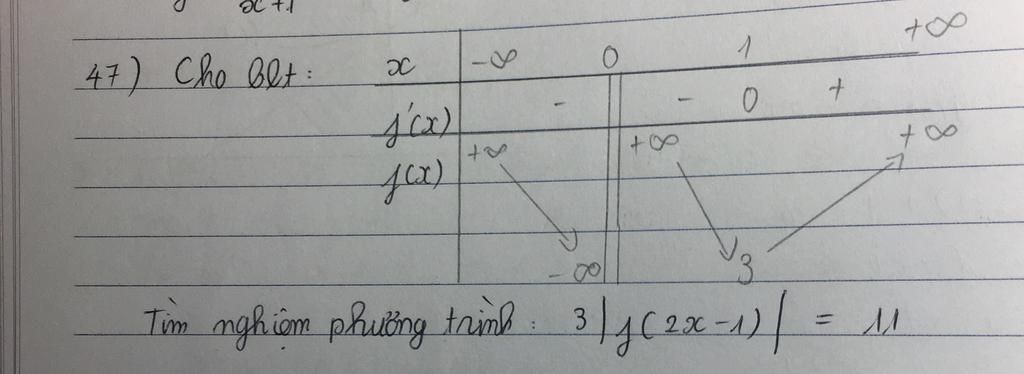 x+1
47) Cho bbt: x -∞ 0 1 +∞
f'(x) - - 0 +
f(x) +∞ -∞ +∞ 3 +∞
Tìm nghiệm phương trình: 3|f(2x-1)| = 11